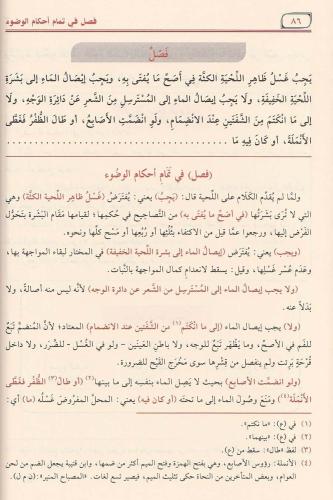 ٨٦
فصل في تمام أحكام الوضوء
فَصْلٌ
يَجِبُ غَسْلُ ظَاهِرِ اللِّحْيَةِ الكَثَّةِ فِي أَصَحِّ مَا يُفْتَى بِهِ، وَيَجِبُ إِيصَالُ المَاءِ إِلَى بَشَرَةِ
اللِّحْيَةِ الخَفِيفَةِ، وَلَا يَجِبُ إِيصَالُ المَاءِ إِلَى المُسْتَرْسِلِ مِنَ الشَّعرِ عَنْ دَائِرَةِ الوَجْهِ، وَلَا
إِلَى مَا انْكَتَمَ مِنَ الشَّفَتَيْنِ عِنْدَ الانْضِمَامِ، وَلَوِ انْضَمَّتِ الأَصَابِعُ، أَو طَالَ الظُّفُرُ فَغَطَّى
الأَنْمَلَةَ، أَوْ كَانَ فِيهِ مَا
(فصل) في تَمَامِ أحكام الوضوء
ولمّا لم يتقدم الكَلَام على اللحية قال: (يَجِبُ) يعني: يُفْتَرَضُ (غَسْلُ ظاهرِ اللحية الكَثَّة) وهي
التي لا تُرَى بَشَرَتُهَا (في أصَحّ ما يُفْتَى به) من التصاحيح في حُكمها؛ لقيامها مقَامَ البَشَرة بتَحَوُّل
الفَرْضِ إليها، ورجعوا عمَّا قيل من الاكتفاء بثُلُثِها أو رُبعِها أو مَسْحِ كلِّها ونحوه.
(ويجب) يعني: يُفْتَرَضُ (إيصالُ الماءِ إلى بشرة اللحية الخفيفة) في المختار لبقاء المواجهة بها،
وعَدَمِ عُسْرِ غَسْلِها، وقيل: يسقط لانعدام كمال المواجهة بالنَّبات.
(ولا يجب إيصال الماء إلى المُسْتَرْسِل من الشعر عن دائرة الوجه) لأنه ليس منه أصالةً، ولا
بَدلًا عنه.
(ولا) يجب إيصال الماء (إلى ما انْكَتَمَ(١) من الشَّفَتَين عند الانضمام) المعتاد؛ لأنَّ المنضمَّ تَبَعٌ
للفَم في الأصح، وما يَظْهَر تَبَعٌ للوجه، ولا باطنِ العَينَين - ولو في الغُسل - للضَّرر، ولا داخل
قُرْحَةٍ بَرِئت ولم ينفصل من قِشْرِها سوى مَخْرَجِ القَيْحِ للضرورة.
(ولو انضمَّت الأصابع) بحيث لا يَصِل الماء بنفسه إلى ما بينها(٢) (أو طال(٣) الظُّفُر فغَطَّى
الأَنْمَلَة(٤)) ومَنَعَ وُصُولَ الماء إلى ما تحتَه (أو كان فيه) يعني: المحل المفروض غَسْلُه (ما) أي:
(١) في (ع): «ما نكتم».
(٢) في (ع): «بينهما».
(٣) لفظ «طال»: سقط من (ع).
(٤) الأنملة: رؤوس الأصابع، وهي بفتح الهمزة وفتح الميم أكثر من ضمها، وابن قتيبة يجعل الضم من لحن
العوام، وبعض المتأخرين من النحاة حكى تثليث الميم، فيصير تسع لغات. «المصباح المنير»: (ن م ل).